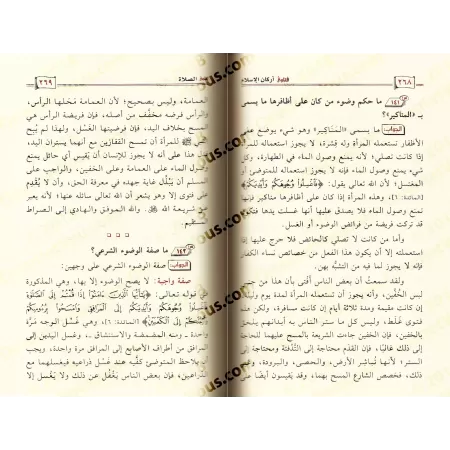 ٢٦٨
فتاوى أركان الإسلام
١٤١ ما حكم وضوء من كان على أظافرها ما يسمى
بـ «المناكير»؟
الجواب ما يسمى «المناكير» وهو شيء يوضع على
الأظفار تستعمله المرأة وله قشرة، لا يجوز استعماله للمرأة
إذا كانت تصلي؛ لأنه يمنع وصول الماء في الطهارة، وكل
شيء يمنع وصول الماء فإنه لا يجوز استعماله للمتوضئ أو
المغتسل؛ لأن الله تعالى يقول: ﴿فَاغْسِلُوا وُجُوهَكُمْ وَأَيْدِيَكُمْ﴾
[المائدة: ٦]، وهذه المرأة إذا كان على أظافرها مناكير فإنها
تمنع وصول الماء فلا يصدق عليها أنها غسلت يدها فتكون
قد تركت فريضة من فرائض الوضوء أو الغسل.
وأما من كانت لا تصلي كالحائض فلا حرج عليها إذا
استعملته إلا أن يكون هذا الفعل من خصائص نساء الكفار
فإنه لا يجوز لما فيه من التشبه بهم.
ولقد سمعت أن بعض الناس أفتى بأن هذا من جنس
لبس الخفين، وأنه يجوز أن تستعمله المرأة لمدة يوم وليلة
إن كانت مقيمة ومدة ثلاثة أيام إن كانت مسافرة، ولكن هذه
فتوى غلط، وليس كل ما ستر الناس به أبدانهم يلحق
بالخفين، فإن الخفين جاءت الشريعة بالمسح عليهما للحاجة
إلى ذلك غالبًا، فإن القدم محتاجة إلى التدفئة ومحتاجة إلى
الستر؛ لأنها تباشر الأرض، والحصى، والبرودة، وغير
ذلك، فخصص الشارع المسح بهما، وقد يقيسون أيضًا على
الصلاة
٢٦٩
العمامة، وليس بصحيح؛ لأن العمامة محلها الرأس،
والرأس فرضه مخفف من أصله، فإن فريضة الرأس هي
المسح بخلاف اليد، فإن فرضيتها الغسل، ولهذا لم يبح
للمرأة أن تمسح القفازين مع أنهما يستران اليد،
هذا على أنه لا يجوز للإنسان أن يقيس أي حائل يمنع
وصول الماء على العمامة وعلى الخفين، والواجب على
المسلم أن يبذل غاية جهده في معرفة الحق، وأن لا يُقدِم
على فتوى إلا وهو يشعر أن الله تعالى سائله عنها؛ لأنه يعبر
شريعة الله. والله الموفق والهادي إلى الصراط
١٤٢ ما صفة الوضوء الشرعي؟
الجواب صفة الوضوء الشرعي على وجهين:
صفة واجبة: لا يصح الوضوء إلا بها، وهي المذكورة
في قوله تعالى: ﴿يَا أَيُّهَا الَّذِينَ آمَنُوا إِذَا قُمْتُمْ إِلَى الصَّلَاةِ
وُجُوهَكُمْ وَأَيْدِيَكُمْ إِلَى الْمَرَافِقِ وَامْسَحُوا بِرُءُوسِكُمْ
وَأَرْجُلَكُمْ إِلَى الْكَعْبَيْنِ﴾ [المائدة: ٦]، وهي غسل الوجه مرة
واحدة، ومنه المضمضة والاستنشاق، وغسل اليدين إلى
المرافق من أطراف الأصابع إلى المرافق مرة واحدة، ويجب
أن يلاحظ المتوضئ كفيه عند غسل ذراعيه فيغسلهما مع
الذراعين، فإن بعض الناس يغفل عن ذلك ولا يغسل إلا